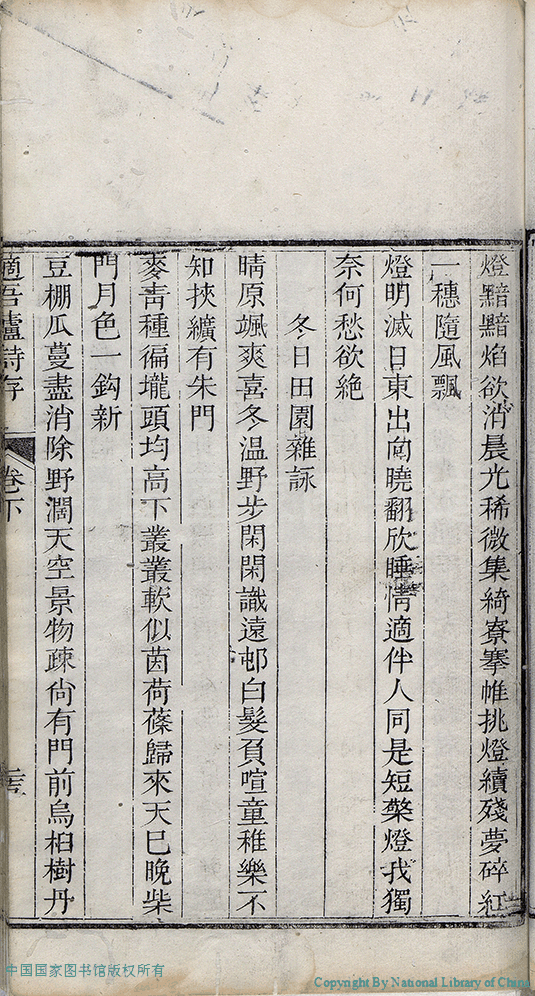 燈黯黯焰欲消晨光稀微集綺寮搴帷挑燈續殘夢碎紅
一穗隨風飄
燈明滅日東出向曉翻欣睡情適伴人同是短檠燈我獨
奈何愁欲絶
冬日田園雜詠
晴原颯爽喜冬温野步閑閑識遠邨白髮負喧童稚樂不
知挾纊有朱門
麥靑種徧壠頭均高下叢叢軟似茵荷蓧歸來天已晚柴
門月色一鈎新
豆棚瓜蔓盡消除野濶天空景物疎尙有門前烏桕樹丹
適吾廬詩存
卷下
中国国家图书馆版权所有
Copyright By National Library of China